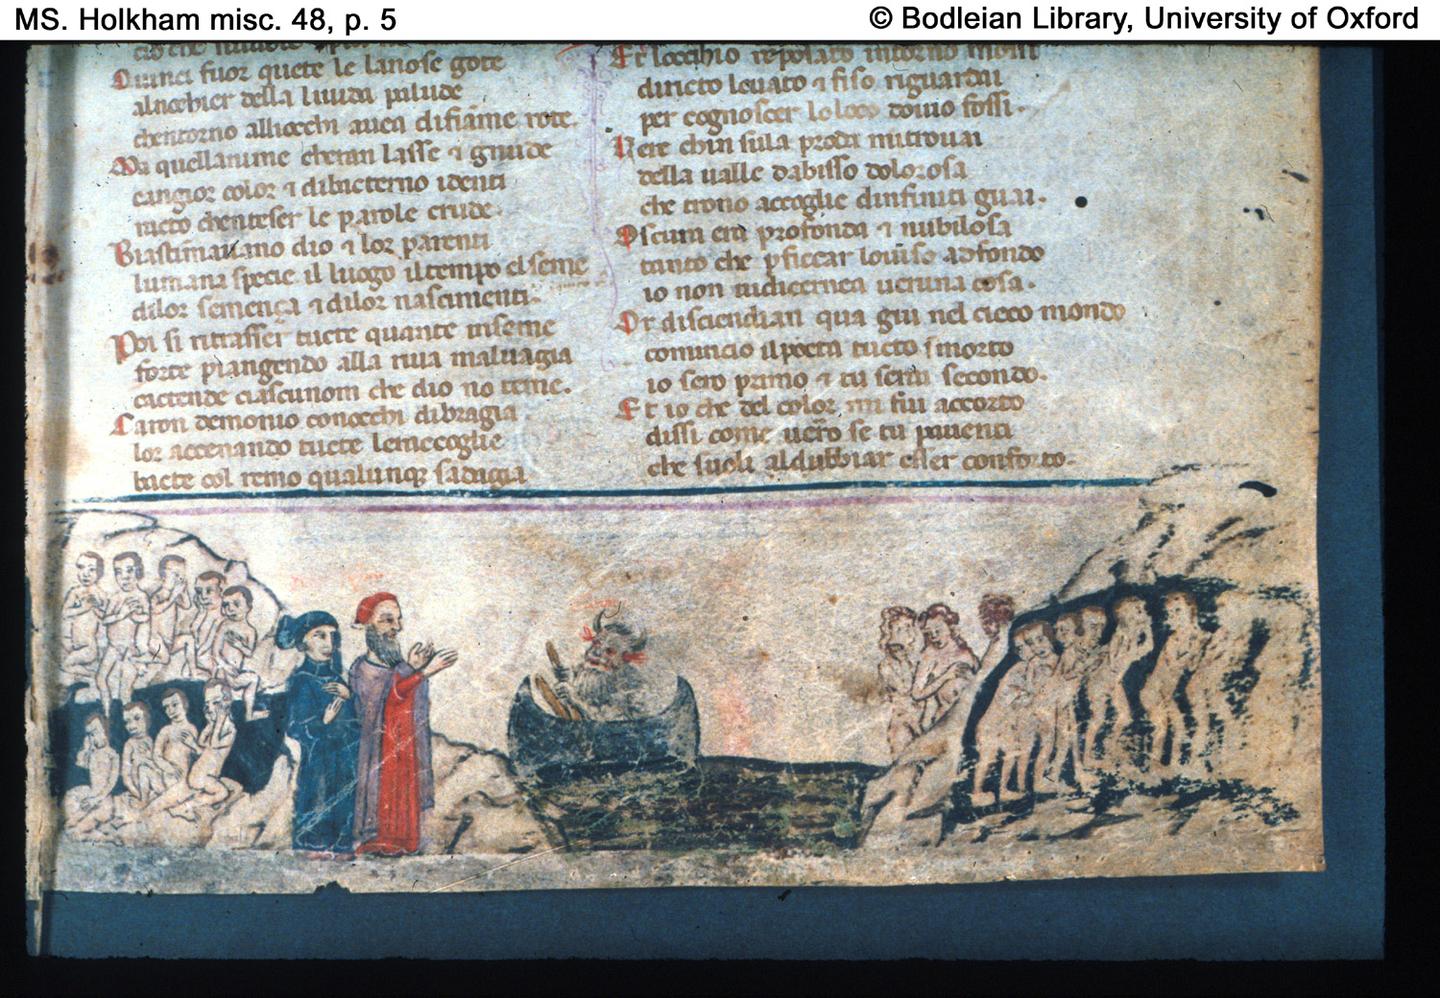 MS. Holkham misc. 48, p. 5
© Bodleian Library, University of Oxford
cio che
Quinci fuor quete le lanose gote
al nocchier della liuida palude
chentorno alliocchi auea difiãme rote.
Ma quellanime cheran lasse ⁊ gnude
cangior color ⁊ dibacterno identi
racto chenteser le parole crude.
Biastimauano dio ⁊ lor parenti
lumana specie il luogo iltempo elseme
dilor semença ⁊ dilor nascimenti.
Poi si ritrasser tucte quante inseme
forte piangendo alla riua maluagia
cactende ciascunom che dio no teme.
Caron demonio conocchi dibragia
lor accenando tucte lemecoglie
bacte col remo qualunqꝫ sadagia
Et locchio reposato intorno mossi
diricto leuato ⁊ fiso riguardai
per cognoscer lo loco douio fossi.
Vere chin sula proda mitrouai
della ualle dabisso dolorosa
che trono accoglie dinfiniti guai.
Oscura era profonda ⁊ nubilosa
tanto che p ficcar louiso adfondo
io non uidicernea ueruna cosa.
Or disciendian qua giu nel cieco mondo
comincio ilpoeta tucto smorto
io sero primo ⁊ tu serai secondo.
Et io che del color mi fui accorto
dissi come uerro se tu pauenti
che suoli aldubbiar esser conforto.